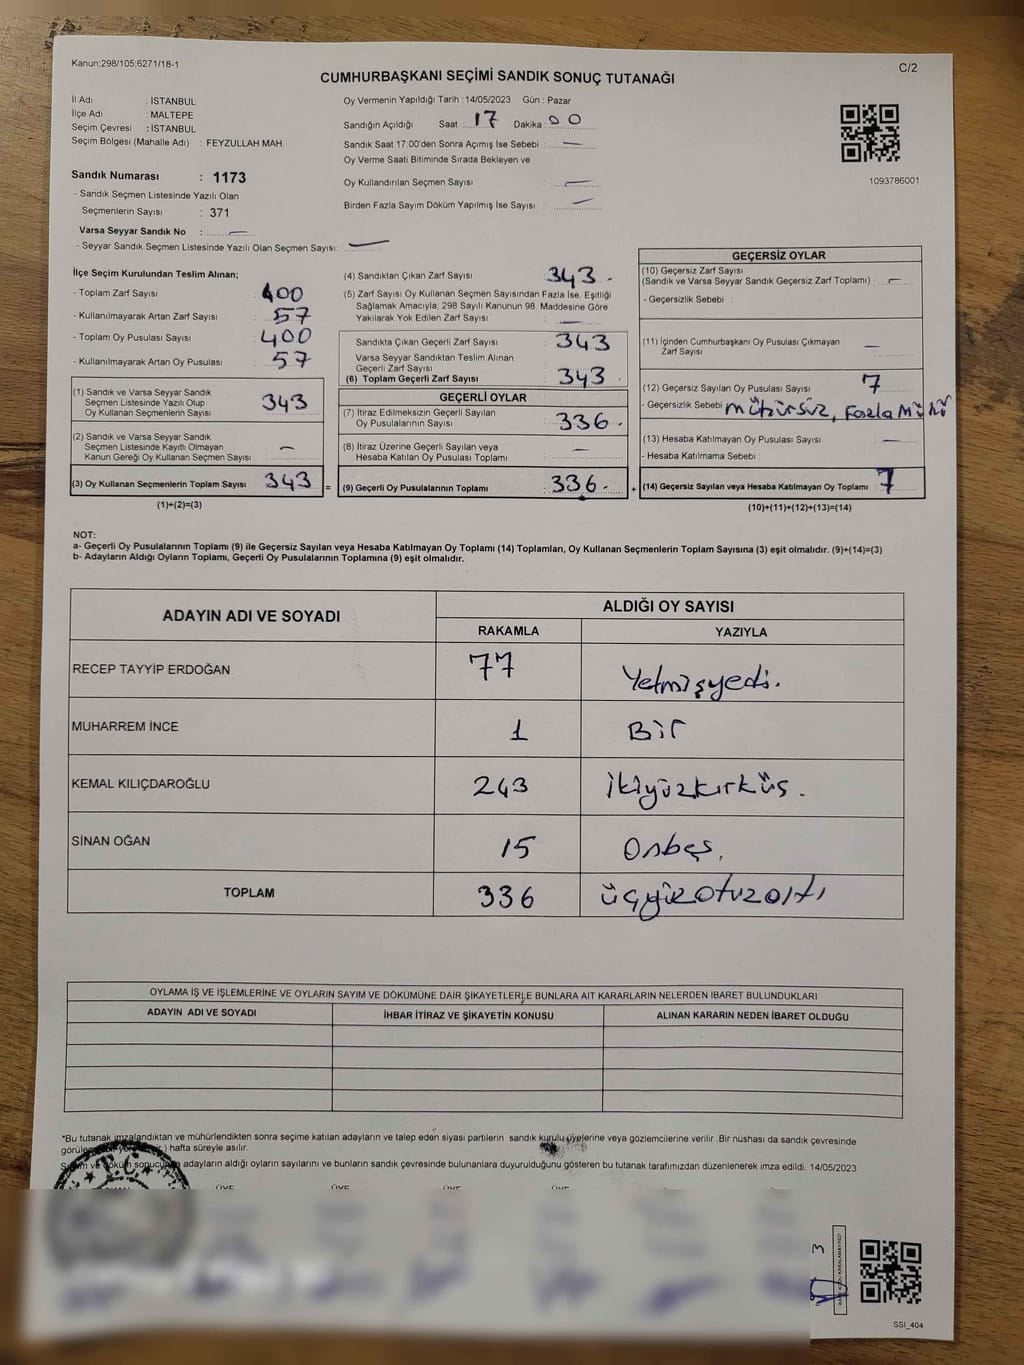 Kanun;298/105;6271/18-1
C/2
CUMHURBAŞKANI SEÇİMİ SANDIK SONUÇ TUTANAĞI
İl Adı : İSTANBUL
İlçe Adı : MALTEPE
Seçim Çevresi : İSTANBUL
Seçim Bölgesi (Mahalle Adı) : FEYZULLAH MAH.
Oy Vermenin Yapıldığı Tarih :14/05/2023 Gün : Pazar
Sandığın Açıldığı Saat :...17 Dakika: 00
Sandık Saat 17:00'den Sonra Açımış İse Sebebi : —
Oy Verme Saati Bitiminde Sırada Bekleyen ve
Oy Kullandırılan Seçmen Sayısı : —
Birden Fazla Sayım Döküm Yapılmış İse Sayısı : —
1093786001
Sandık Numarası : 1173
- Sandık Seçmen Listesinde Yazılı Olan
Seçmenlerin Sayısı : 371
Varsa Seyyar Sandık No : —
- Seyyar Sandık Seçmen Listesinde Yazılı Olan Seçmen Sayısı: —
İlçe Seçim Kurulundan Teslim Alınan;
- Toplam Zarf Sayısı : 400
- Kullanılmayarak Artan Zarf Sayısı : 57
- Toplam Oy Pusulası Sayısı : 400
- Kullanılmayarak Artan Oy Pusulası : 57
(1) Sandık ve Varsa Seyyar Sandık
Seçmen Listesinde Yazılı Olup
Oy Kullanan Seçmenlerin Sayısı : 343
(2) Sandık ve Varsa Seyyar Sandık
Seçmen Listesinde Kayıtlı Olmayan
Kanun Gereği Oy Kullanan Seçmen Sayısı : —
(3) Oy Kullanan Seçmenlerin Toplam Sayısı : 343 =
(1)+(2)=(3)
(4) Sandıktan Çıkan Zarf Sayısı : 343.
(5) Zarf Sayısı Oy Kullanan Seçmen Sayısından Fazla İse, Eşitliği
Sağlamak Amacıyla, 298 Sayılı Kanunun 98. Maddesine Göre
Yakılarak Yok Edilen Zarf Sayısı : —
Sandıkta Çıkan Geçerli Zarf Sayısı : 343
Varsa Seyyar Sandıktan Teslim Alınan
Geçerli Zarf Sayısı :
(6) Toplam Geçerli Zarf Sayısı : 343
GEÇERLİ OYLAR
(7) İtiraz Edilmeksizin Geçerli Sayılan
Oy Pusulalarının Sayısı : 336.
(8) İtiraz Üzerine Geçerli Sayılan veya
Hesaba Katılan Oy Pusulası Toplamı : —
(9) Geçerli Oy Pusulalarının Toplamı : 336. +
GEÇERSİZ OYLAR
(10) Geçersiz Zarf Sayısı
(Sandık ve Varsa Seyyar Sandık Geçersiz Zarf Toplamı) : —
- Geçersizlik Sebebi :
(11) İçinden Cumhurbaşkanı Oy Pusulası Çıkmayan
Zarf Sayısı : —
(12) Geçersiz Sayılan Oy Pusulası Sayısı : 7
- Geçersizlik Sebebi : mühürsüz, Fazla Mühü
(13) Hesaba Katılmayan Oy Pusulası Sayısı : —
- Hesaba Katılmama Sebebi :
(14) Geçersiz Sayılan veya Hesaba Katılmayan Oy Toplamı : 7
(10)+(11)+(12)+(13)=(14)
NOT:
a- Geçerli Oy Pusulalarının Toplamı (9) ile Geçersiz Sayılan veya Hesaba Katılmayan Oy Toplamı (14) Toplamları, Oy Kullanan Seçmenlerin Toplam Sayısına (3) eşit olmalıdır. (9)+(14)=(3)
b- Adayların Aldığı Oyların Toplamı, Geçerli Oy Pusulalarının Toplamına (9) eşit olmalıdır.
ADAYIN ADI VE SOYADI
ALDIĞI OY SAYISI
RAKAMLA YAZIYLA
RECEP TAYYİP ERDOĞAN 77 Yetmişyedi.
MUHARREM İNCE 1 Bir
KEMAL KILIÇDAROĞLU 243 ikiyüzkırküç.
SİNAN OĞAN 15 Onbeş.
TOPLAM 336 üçyüzotuzaltı
OYLAMA İŞ VE İŞLEMLERİNE VE OYLARIN SAYIM VE DÖKÜMÜNE DAİR ŞİKAYETLERLE BUNLARA AİT KARARLARIN NELERDEN İBARET BULUNDUKLARI
ADAYIN ADI VE SOYADI İHBAR İTİRAZ VE ŞİKAYETİN KONUSU ALINAN KARARIN NEDEN İBARET OLDUĞU
*Bu tutanak imzalandıktan ve mühürlendikten sonra seçime katılan adayların ve talep eden siyasi partilerin sandık kurulu üyelerine veya gözlemcilerine verilir .Bir nüshası da sandık çevresinde
hafta süreyle asılır.
Sayım ve döküm sonucunda adayların aldığı oyların sayılarını ve bunların sandık çevresinde bulunanlara duyurulduğunu gösteren bu tutanak tarafımızdan düzenlenerek imza edildi. 14/05/2023
ÜYE ÜYE ÜYE ÜYE
T.C.
3
SSI_404